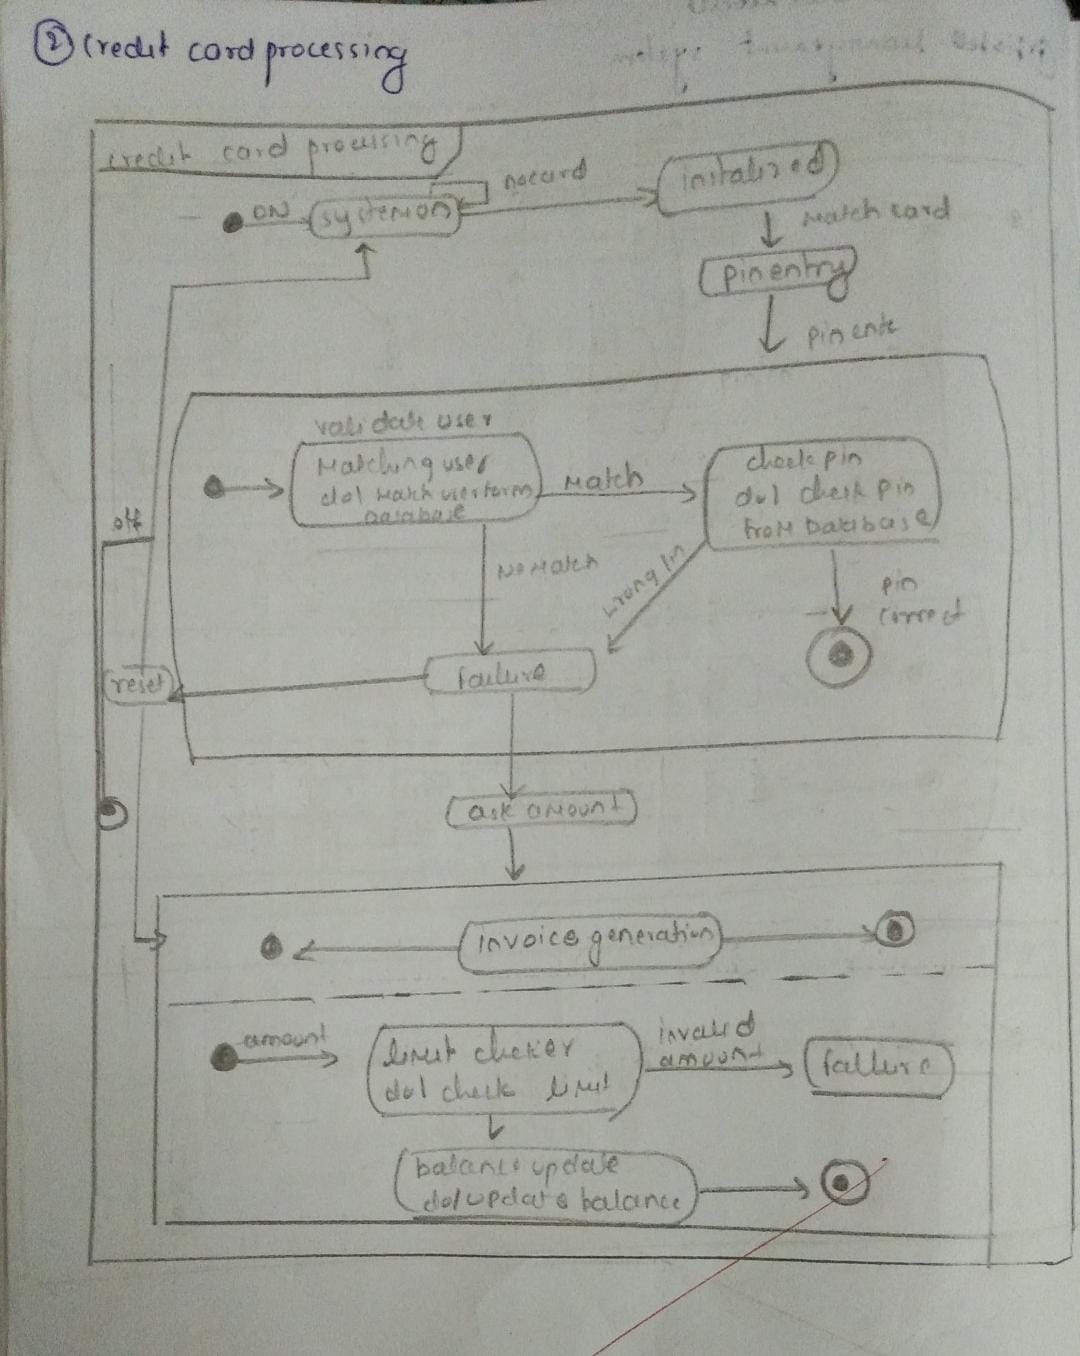 ② Credit card processing
credit card processing
ON
system on
no card
initalized
Match card
pin entry
pin ente
validate user
Matching user
do/ Match user form
Database
Match
check pin
do/ check pin
from Database
off
No Match
wrong
pin
correct
reset
failure
ask amount
invoice generation
amount
limit checker
do/ check limit
invalid
amount
failure
balance update
do/update balance